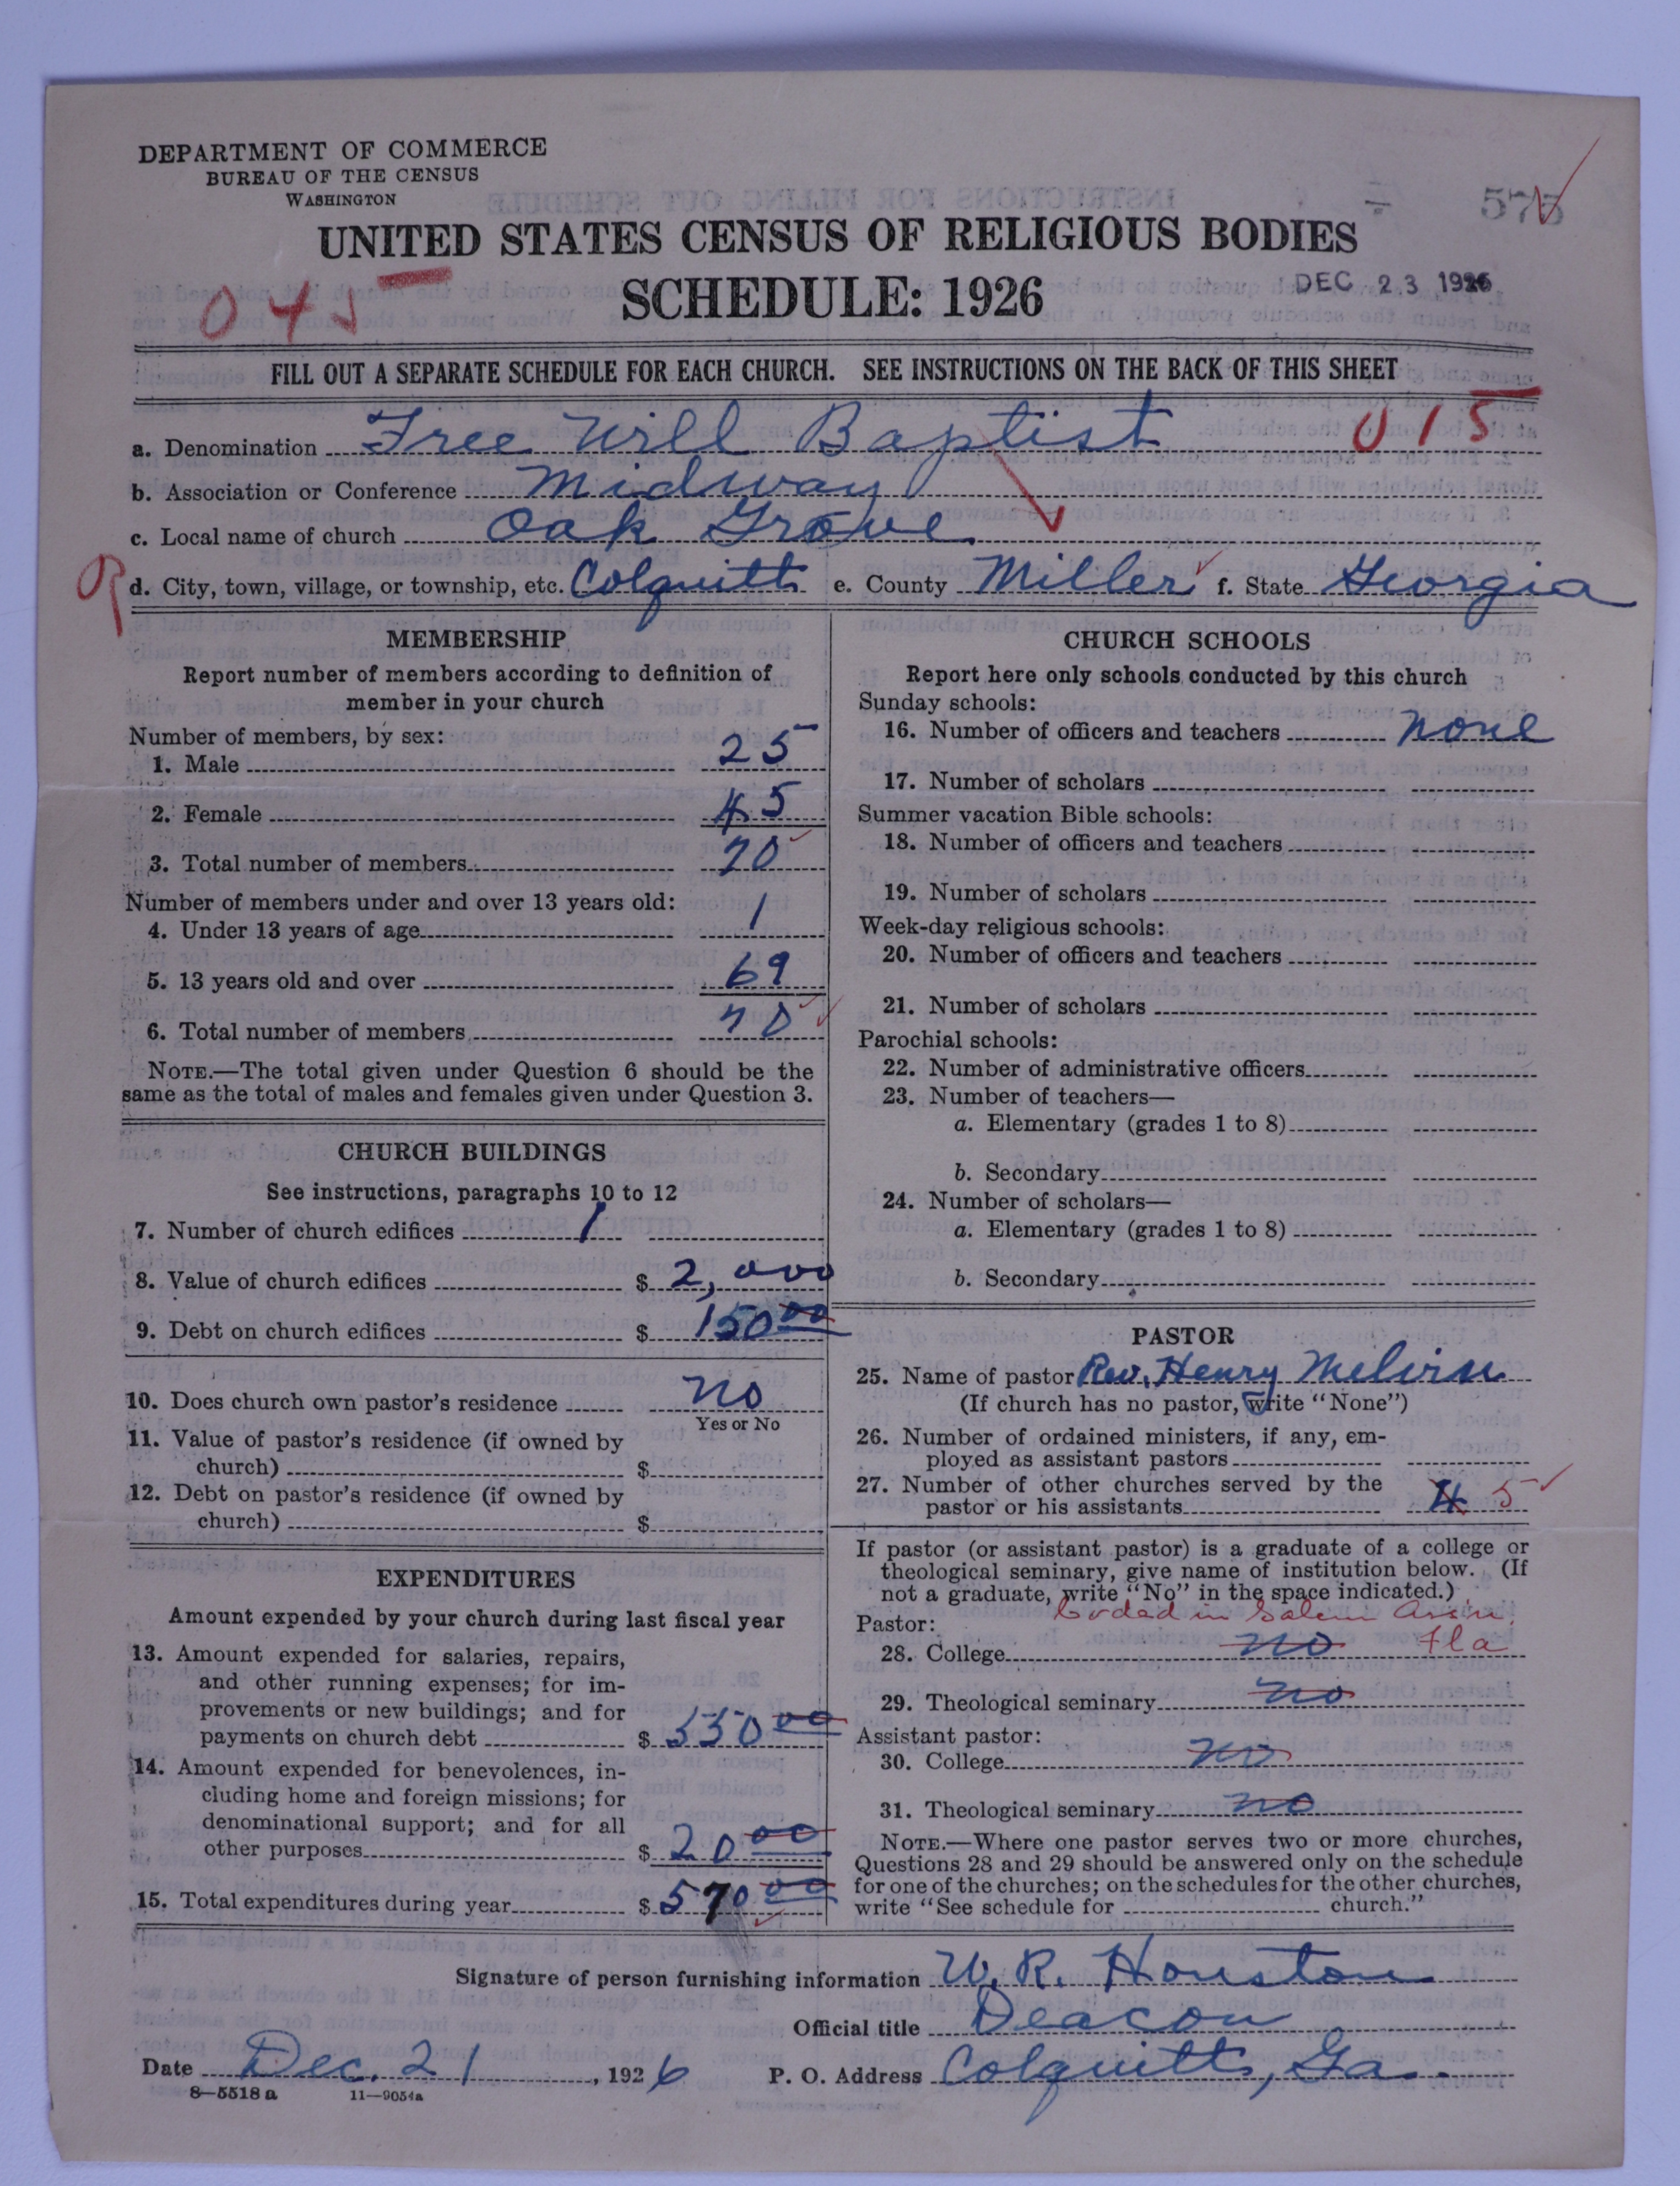 DEPARTMENT OF COMMERCE
BUREAU OF THE CENSUS
WASHINGTON
575
UNITED STATES CENSUS OF RELIGIOUS BODIES
SCHEDULE: 1926
DEC 23 1926
045
FILL OUT A SEPARATE SCHEDULE FOR EACH CHURCH. SEE INSTRUCTIONS ON THE BACK OF THIS SHEET
a. Denomination Free Will Baptist 015
b. Association or Conference Midway
c. Local name of church Oak Grove
d. City, town, village, or township, etc. Colquitt e. County Miller f. State Georgia
MEMBERSHIP
Report number of members according to definition of
member in your church
Number of members, by sex:
1. Male 25
2. Female 45
3. Total number of members 70
Number of members under and over 13 years old:
4. Under 13 years of age 1
5. 13 years old and over 69
6. Total number of members 70
NOTE.—The total given under Question 6 should be the
same as the total of males and females given under Question 3.
CHURCH BUILDINGS
See instructions, paragraphs 10 to 12
7. Number of church edifices 1
8. Value of church edifices $ 2,000
9. Debt on church edifices $ 150 00
10. Does church own pastor's residence no
Yes or No
11. Value of pastor's residence (if owned by
church) $
12. Debt on pastor's residence (if owned by
church) $
EXPENDITURES
Amount expended by your church during last fiscal year
13. Amount expended for salaries, repairs,
and other running expenses; for im-
provements or new buildings; and for
payments on church debt $ 550 00
14. Amount expended for benevolences, in-
cluding home and foreign missions; for
denominational support; and for all
other purposes $ 20 00
15. Total expenditures during year $ 570 00
CHURCH SCHOOLS
Report here only schools conducted by this church
Sunday schools:
16. Number of officers and teachers none
17. Number of scholars
Summer vacation Bible schools:
18. Number of officers and teachers
19. Number of scholars
Week-day religious schools:
20. Number of officers and teachers
21. Number of scholars
Parochial schools:
22. Number of administrative officers
23. Number of teachers—
a. Elementary (grades 1 to 8)
b. Secondary
24. Number of scholars—
a. Elementary (grades 1 to 8)
b. Secondary
PASTOR
25. Name of pastor Rev. Henry Melvin
(If church has no pastor, write "None")
26. Number of ordained ministers, if any, em-
ployed as assistant pastors
27. Number of other churches served by the
pastor or his assistants 4 5
If pastor (or assistant pastor) is a graduate of a college or
theological seminary, give name of institution below. (If
not a graduate, write "No" in the space indicated.)
Coded in Salem Ass'n
Pastor:
28. College no Fla
29. Theological seminary no
Assistant pastor:
30. College no
31. Theological seminary no
NOTE.—Where one pastor serves two or more churches,
Questions 28 and 29 should be answered only on the schedule
for one of the churches; on the schedules for the other churches,
write "See schedule for church."
Signature of person furnishing information W. R. Houston
Official title Deacon
Date Dec. 21, 1926 P. O. Address Colquitt, Ga.
8—5518 a 11—9054a